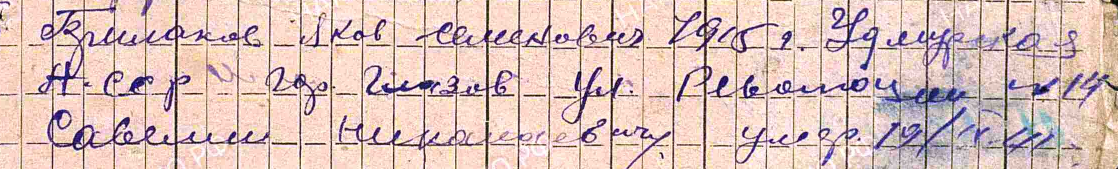 Яков Семенович 1915 г. Удмурская
А. ССР гор Глазов ул. Революции № 14
Савелии Николаевичу умер 19/ 41.